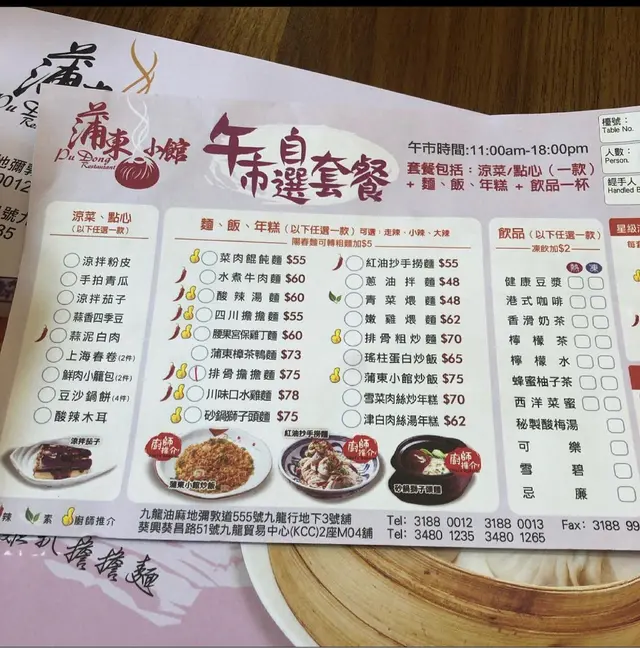 蒲東小館
Pu Dong
Restaurant
午市自選套餐
午市時間:11:00am-18:00pm
套餐包括：涼菜/點心（一款）
+ 麵、飯、年糕 + 飲品一杯
檯號：
Table No.
人數：
Person.
經手人
Handled B
涼菜、點心
（以下任選一款）
涼拌粉皮
手拍青瓜
涼拌茄子
蒜香四季豆
蒜泥白肉
上海春卷(2件)
鮮肉小籠包(2件)
豆沙鍋餅(4件)
酸辣木耳
涼拌茄子
麵、飯、年糕（以下任選一款）可選：走辣、小辣、大辣
陽春麵可轉粗麵加$5
菜肉餛飩麵 $55
水煮牛肉麵 $60
酸辣湯麵 $60
四川擔擔麵 $55
腰果宮保雞丁麵 $60
蒲東樟茶鴨麵 $73
排骨擔擔麵 $75
川味口水雞麵 $78
砂鍋獅子頭麵 $75
紅油抄手撈麵 $55
蔥油拌麵 $48
青菜煨麵 $48
嫩雞煨麵 $62
排骨粗炒麵 $70
瑤柱蛋白炒飯 $65
蒲東小館炒飯 $75
雪菜肉絲炒年糕 $70
津白肉絲湯年糕 $62
廚師推介
蒲東小館炒飯
紅油抄手撈麵
廚師推介
廚師推介
砂鍋獅子頭麵
飲品（以下任選一款）
凍飲加$2
熱 凍
健康豆漿
港式咖啡
香滑奶茶
檸檬茶
檸檬水
蜂蜜柚子茶
西洋菜蜜
秘製酸梅湯
可樂
雪碧
忌廉
星級
辣 素 廚師推介
九龍油麻地彌敦道555號九龍行地下3號舖
葵興葵昌路51號九龍貿易中心(KCC)2座M04舖
Tel: 3188 0012 3188 0013 Fax: 3188 99
Tel: 3480 1235 3480 1265
擔擔麵